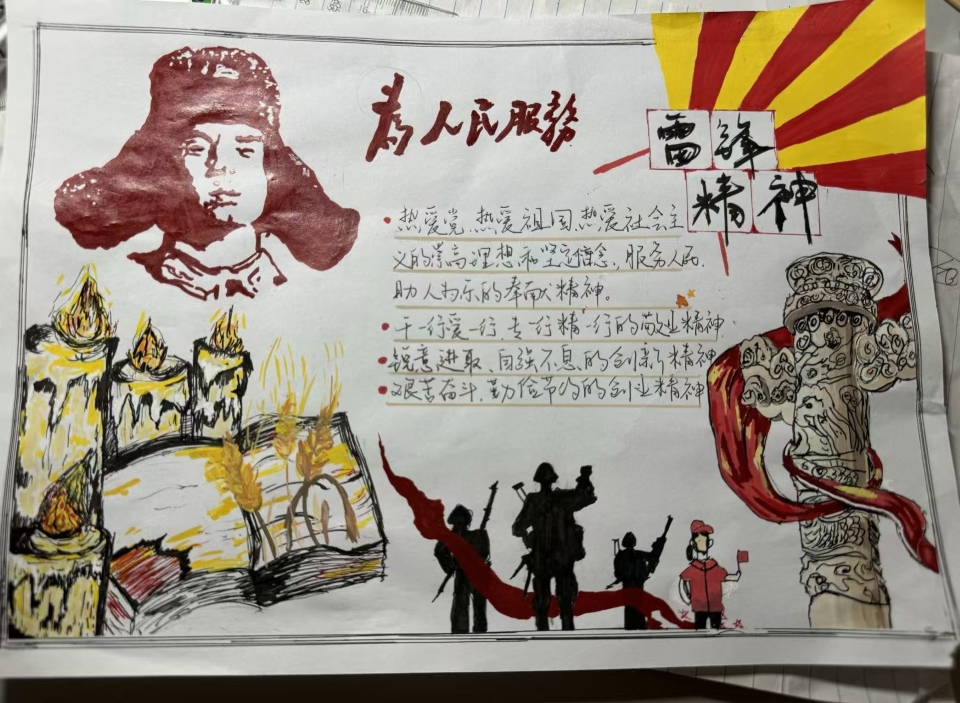 為人民服務
雷锋
精神
热爱党、热爱祖国、热爱社会主
义的崇高理想和坚定信念，服务人民、
助人为乐的奉献精神。
干一行爱一行、专一行精一行的敬业精神
锐意进取、自强不息的创新精神
艰苦奋斗、勤俭节约的创业精神